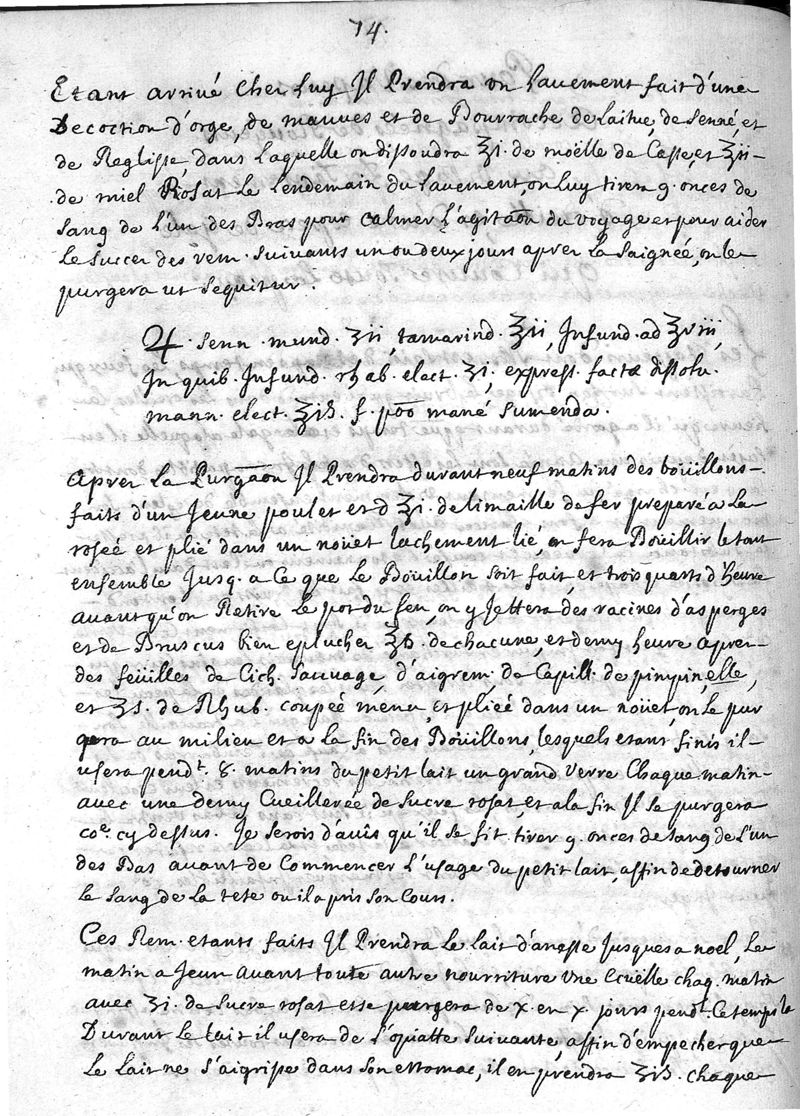 74.
Etant arrivé Chez luy Il Prendra un lavement fait d'une
Decoction d'orge, de mauves et de Bourrache de laitue, de senné, et
de Reglisse, dans laquelle on dissoudra ℥i. de moëlle de Casse, et ℥ii-
de miel Rosat Le Lendemain du lavement, on luy tirera 9. onces de
sang de l'un des Bras pour calmer l'agitaõn du voyage et pour aider
Le succez des rem. suivants un ou deux jours aprez La saignée, on le
purgera ut sequitur.
♃. senn. mund. ʒii, tamarind. ℥ii, Infund. ad ℥viii,
In quib. Infund. rhab. elect. ʒi, express. factæ dissolv.
mann. elect. ℥iß. f. põo mané sumenda.
Aprez La Purgaõn Il Prendra durant neuf matins des boüillons-
faits d'un Jeune poulet et d ʒi. de limaille de fer preparé a La
rosée et plié dans un noüet lachement lié, on fera Boüillir le tout
ensemble Jusq. a Ce que Le Boüillon soit fait, et trois quarts d'heure
avant qu'on Retire Le pot du feu, on y Jettera des racines d'asperges
et de Bruscus bien eplucher ℥ß. de chacune, et demy heure aprez-
des feüilles de Cich. sauvage, d'aigrem. de Capill. de pimpinelle,
et ʒi. de Rhub. coupée menu, et pliée dans un noüet, on Le pur
gera au milieu et a La fin des Boüillons, lesquels etant finis il-
usera pendt. 8. matins du petit lait un grand verre Chaque matin-
avec une demy Cueillerée de sucre rosat, et a la fin Il se purgera
coe. cy dessus. Je serois d'avis qu'il se fit tirer 9. onces de sang de l'un
des Bas avant de Commencer L'usage du petit lait, affin de detourner
Le sang de La tete ou il a pris son Cours.
Ces Rem. etants faits Il Prendra Le lait d'anesse Jusques a noel, Le
matin a Jeun avant toute autre nourriture une Ecuelle chaq. matin
avec ʒi. de sucre rosat et se purgera de x. en x. jours pendt. Ce temps la
Durant Le Lait il usera de L'opiatte suivante, affin d'empecher que
Le Lait ne s'aigrisse dans son estomac, il en prendra ʒiß. chaque